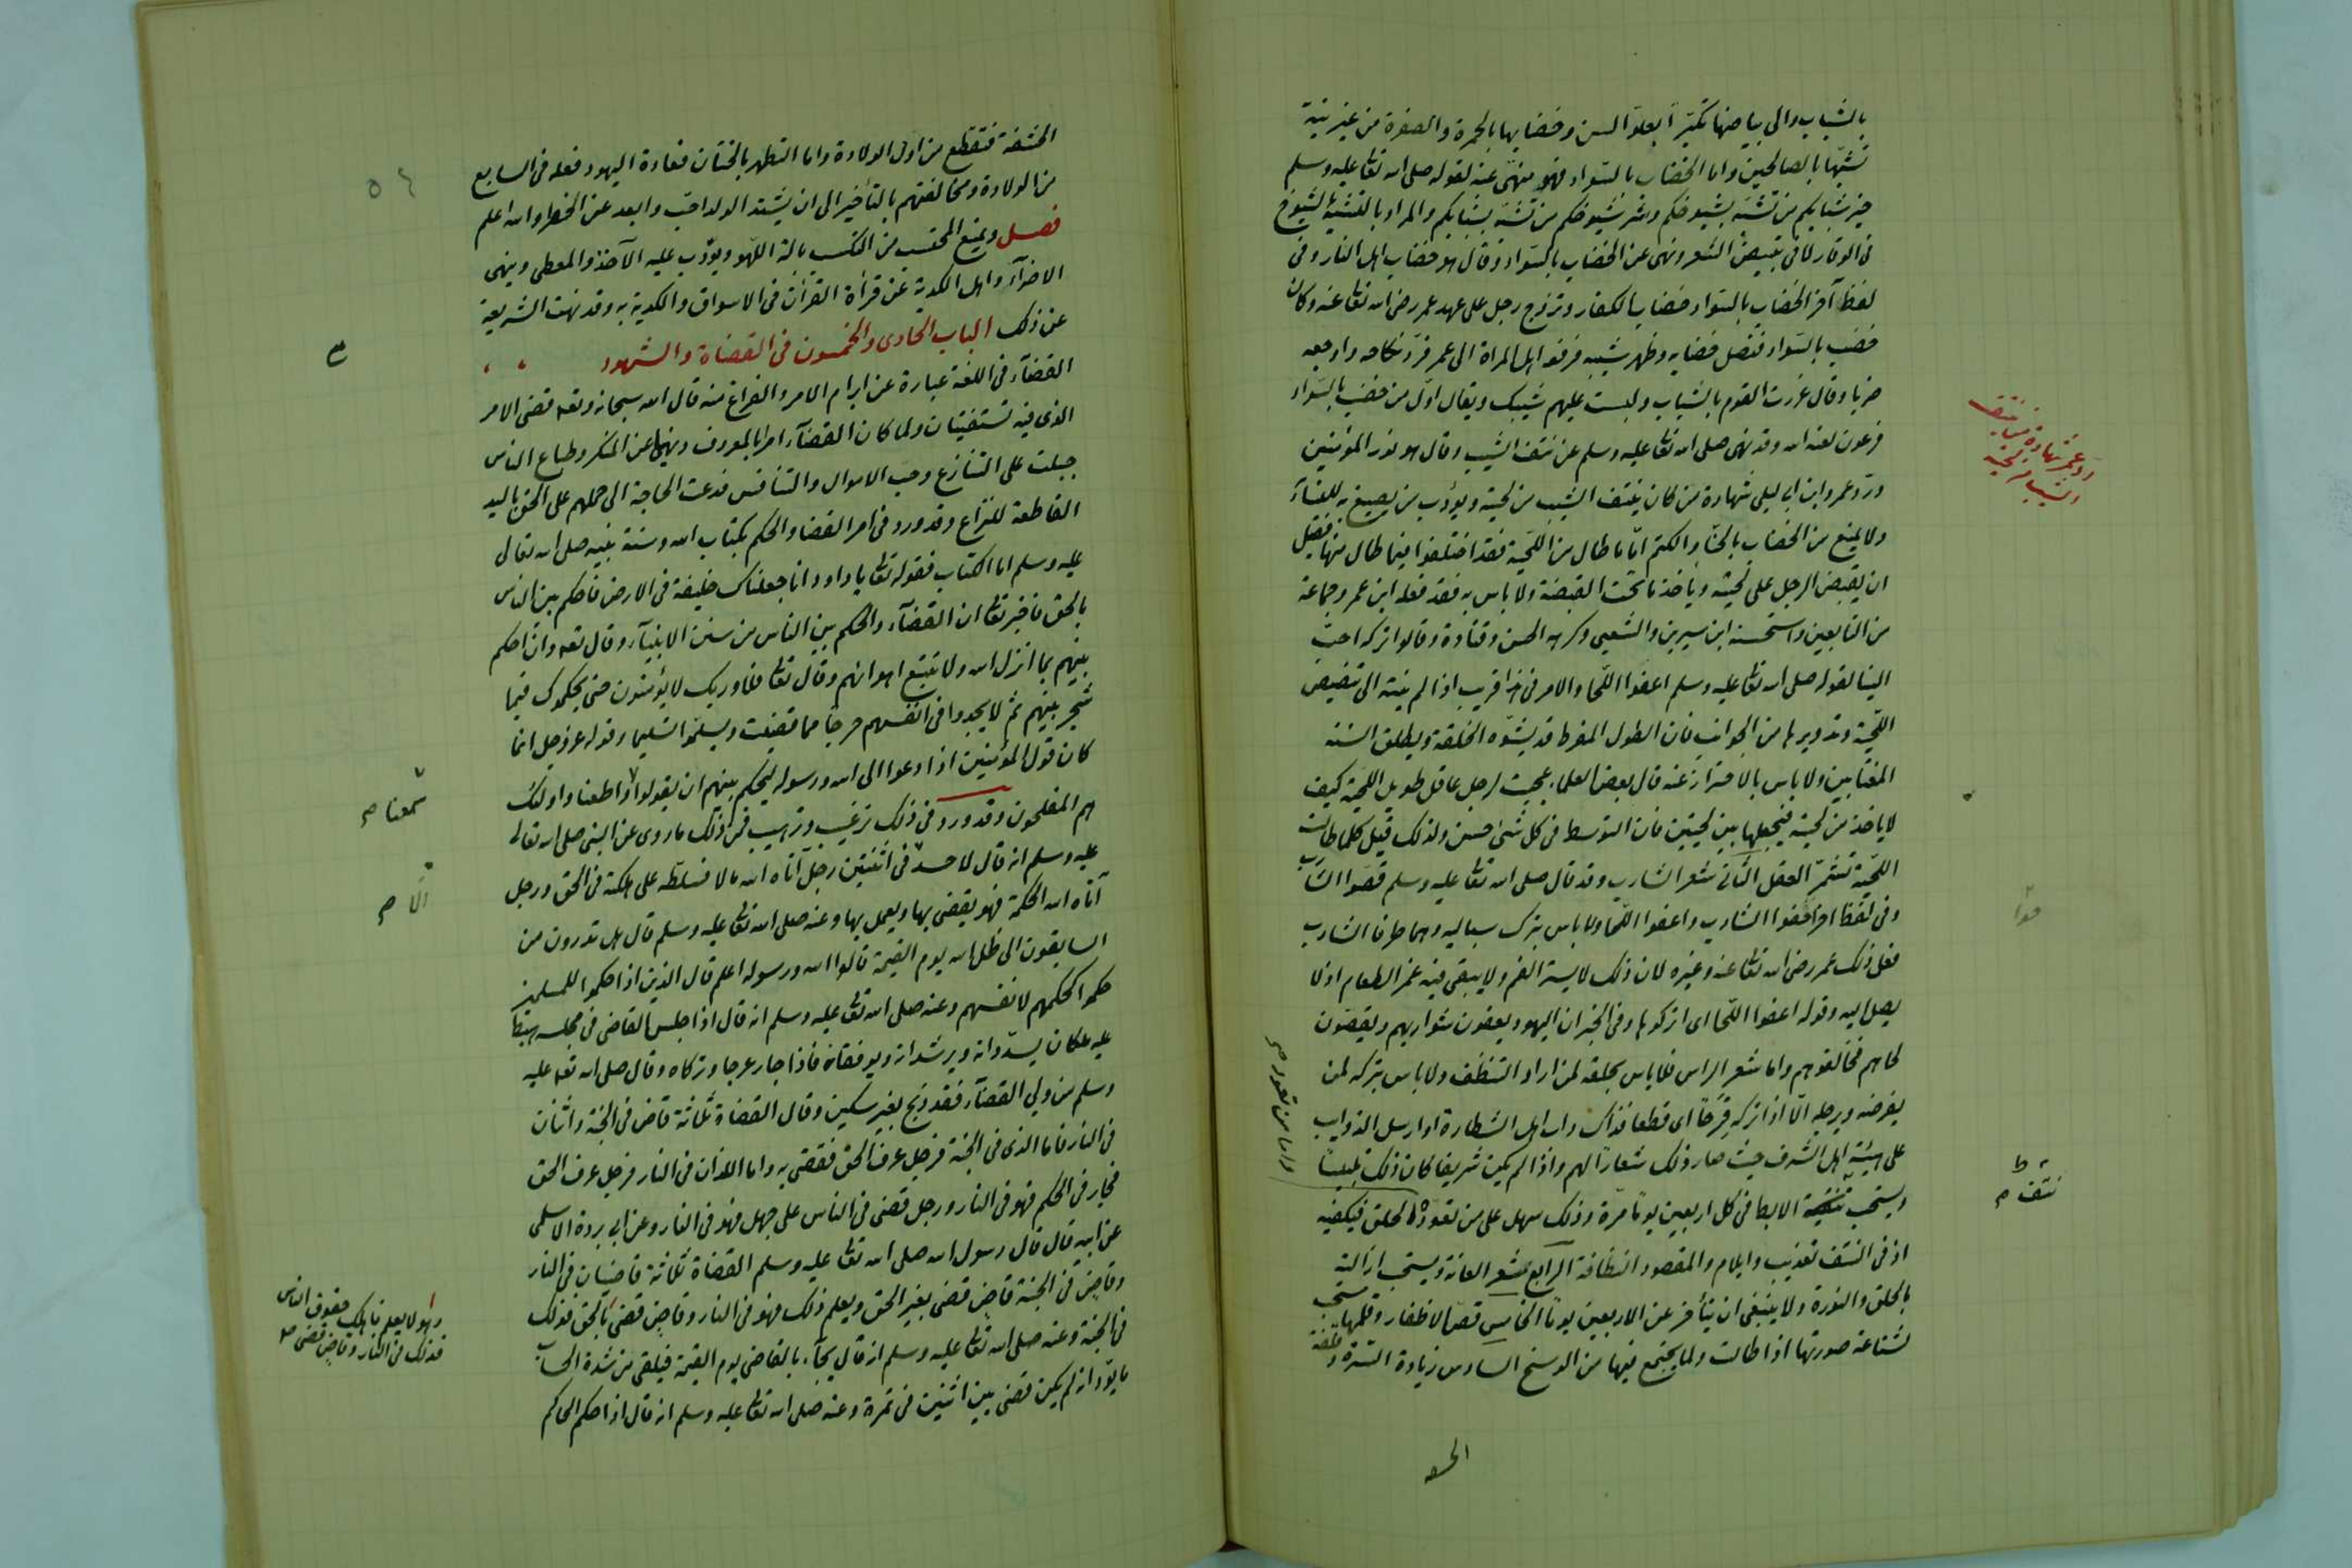 بالشباب والى بياضها تكبّرا بعلوّ السن وخضابها بالحمرة والصفرة من غير نية
تشبّها بالصالحين واما الخضاب بالسواد فهو منهىّ عنه لقوله صلى الله تعا عليه وسلم
خير شبابكم من تشبّه بشيوخكم وشر شيوخكم من تشبّه بشبابكم والمراد بالتشبّه بالشيوخ
فى الوقار لا فى تبييض الشعر ونهى عن الخضاب بالسواد وقال هو خضاب اهل النار وفى
لفظ آخر الخضاب بالسواد خضاب الكفار وتزوج رجل على عهد عمر رضى الله تعا عنه وكان
خضب بالسواد فنصل خضابه وظهر شيبه فرفعه اهل المراة الى عمر فردّ نكاحه واوجعه
ضربا وقال غررت القوم بالشباب ولبست عليهم شيبك ويقال اوّل من خضب بالسواد
فرعون لعنه الله وقد نهى صلى الله تعا عليه وسلم عن نتف الشيب وقال هو نور المؤمنين
وردّ عمر وابن ابى ليلى شهادة من كان ينتف الشيب من لحيته ويؤدب من يصبغ به للنساء
ولا يمنع من الخضاب بالحنا والكتم امّا ما طال من اللحية فقد اختلفوا فيما طال منها فقيل
ان يقبض الرجل على لحيته وياخذ ما تحت القبضة ولا باس به فقد فعله ابن عمر وجماعة
من التابعين واستحسنه ابن سيرين والشعبى وكرهه الحسن وقتادة وقالوا تركه احبّ
الينا لقوله صلى الله تعا عليه وسلم اعفوا اللحا والامر فى هذا قريب اذا لم ينته الى تنقيص
اللحية وتدويرها من الجوانب فان الطول المفرط قد يشوّه الخلقة ويطلق السنة
المغتابين ولا باس بالاحتراز عنه قال بعض العلماء عجبت لرجل عاقل طويل اللحية كيف
لا ياخذ من لحيته فيجعلها بين لحيتين فان التوسط فى كل شئ حسن ولذلك قيل كلما طالت
اللحية تشمّر العقل الثانى شعر الشارب وقد قال صلى الله تعا عليه وسلم قصّوا الشارب
وفى لفظ اخر احفوا الشارب واعفوا اللحا ولا باس بترك سباليه وهما طرفا الشارب
فعل ذلك عمر رضى الله تعا عنه وغيره لان ذلك لا يستر الفم ولا يبقى فيه غمر الطعام اذ لا
يصل اليه وقوله اعفوا اللحا اى اتركوها وفى الخبر ان اليهود يعفون شواربهم ويقصّون
لحاهم فخالفوهم واما شعر الراس فلا باس بحلقه لمن اراد التنظف ولا باس بتركه لمن
يفرضه ويرجله الّا اذا تركه قزعا اى قطعا فذاك داب اهل الشطارة او ارسل الذوايب
على هيئة اهل الشرف حيث صار ذلك شعارا لهم واذا لم يكن شريفا كان ذلك تلبيسا
ويستحب الابط فى كل اربعين يوما مرّة وذلك سهل على من تعوّد الحلق فيكفيه
اذ فى النتف تعذيب وايلام والمقصود النظافة الرابع شعر العانة ويستحب ازالته
بالحلق والنورة ولا ينبغى ان يتأخر عن الاربعين يوما الخامس قصّ الاظفار وقلمها مستحب
لشناعة صورتها اذا طالت ولما يجتمع فيها من الوسخ السادس زيادة السرة وقلفة
ردّ عمر شهادة من ينتف
الشيب من لحيته
نتف م
واما من تعود صح
الحشفة
٥٤
الحشفة فتقطع من اول الولادة واما التطهر بالختان فعادة اليهود فعله فى السابع
من الولادة ومخالفتهم بالتأخير الى ان يشتد الولد احبّ وابعد عن الخطر والله اعلم
فصل ويمنع المحتسب من الكسب بالة اللهو ويؤدّب عليه الآخذ والمعطى وينهى
الاضرآء واهل الكدية عن قرأة القرآن فى الاسواق والكدية به وقد نهت الشريعة
عن ذلك الباب الحادى والخمسون فى القضاة والشهود
القضآء فى اللغة عبارة عن ابرام الامر والفراغ منه قال الله سبحانه وتعه قضى الامر
الذى فيه تستفتيان ولما كان القضآء امرا بالمعروف ونهيا عن المنكر وطباع الناس
جبلت على التنازع وحب الاموال والتنافس فدعت الحاجة الى حملهم على الحق باليد
القاطعة للنزاع وقد ورد فى امر القضا والحكم بكتاب الله وسنة نبيه صلى الله تعالى
عليه وسلم اما الكتاب فقوله تعا يا داود انا جعلناك خليفة فى الارض فاحكم بين الناس
بالحق فاخبر تعا ان القضآء والحكم بين الناس من سنن الانبيآء وقال تعه وان احكم
بينهم بما انزل الله ولا تتبع اهوائهم وقال تعا فلا وربك لا يؤمنون حتى يحكموك فيما
شجر بينهم ثم لا يجدوا فى انفسهم حرجا مما قضيت ويسلموا تسليما وقوله عز وجل انما
كان قول المؤمنين اذا دعوا الى الله ورسوله ليحكم بينهم ان يقولوا واطعنا واولئك
هم المفلحون وقد ورد فى ذلك ترغيب وترهيب فمن ذلك ما روى عن النبى صلى الله تعالى
عليه وسلم انه قال لا حسد فى اثنتين رجل آتاه الله مالا فسلّطه على هلكته فى الحق ورجل
آتاه الله الحكمة فهو يقضى بها ويعمل بها وعنه صلى الله تعا عليه وسلم قال هل تدرون من
السابقون الى ظل الله يوم القيمة قالوا الله ورسوله اعلم قال الذين اذا حكموا للمسلمين
حكموا كحكمهم لانفسهم وعنه صلى الله تعا عليه وسلم انه قال اذا جلس القاضى فى مجلسه هبط
عليه ملكان يسدّدانه ويرشدانه ويوفقانه فاذا جار عرجا وتركاه وقال صلى الله تعه عليه
وسلم من ولى القضآء فقد ذبح بغير سكين وقال القضاة ثلاثة قاض فى الجنة واثنان
فى النار فاما الذى فى الجنة فرجل عرف الحق فقضى به واما اللذان فى النار فرجل عرف الحق
فجار فى الحكم فهو فى النار ورجل قضى فى الناس على جهل فهو فى النار وعن ابى بردة الاسلمى
عن ابيه قال قال رسول الله صلى الله تعا عليه وسلم القضاة ثلاثة قاضيان فى النار
وقاض فى الجنة قاض قضى بغير الحق ويعلم ذلك فهو فى النار وقاض قضى بالحق فذلك
فى الجنة وعنه صلى الله تعا عليه وسلم انه قال يجآء بالقاضى يوم القيمة فيلقى من شدة الحساب
ما يودّ انه لم يكن قضى بين اثنين فى تمرة وعنه صلى الله تعا عليه وسلم انه قال اذا حكم الحاكم
سمعنا صح
الّا صح
وهو لا يعلم فاهلك حقوق الناس
فذلك فى النار وقاض قضى صح